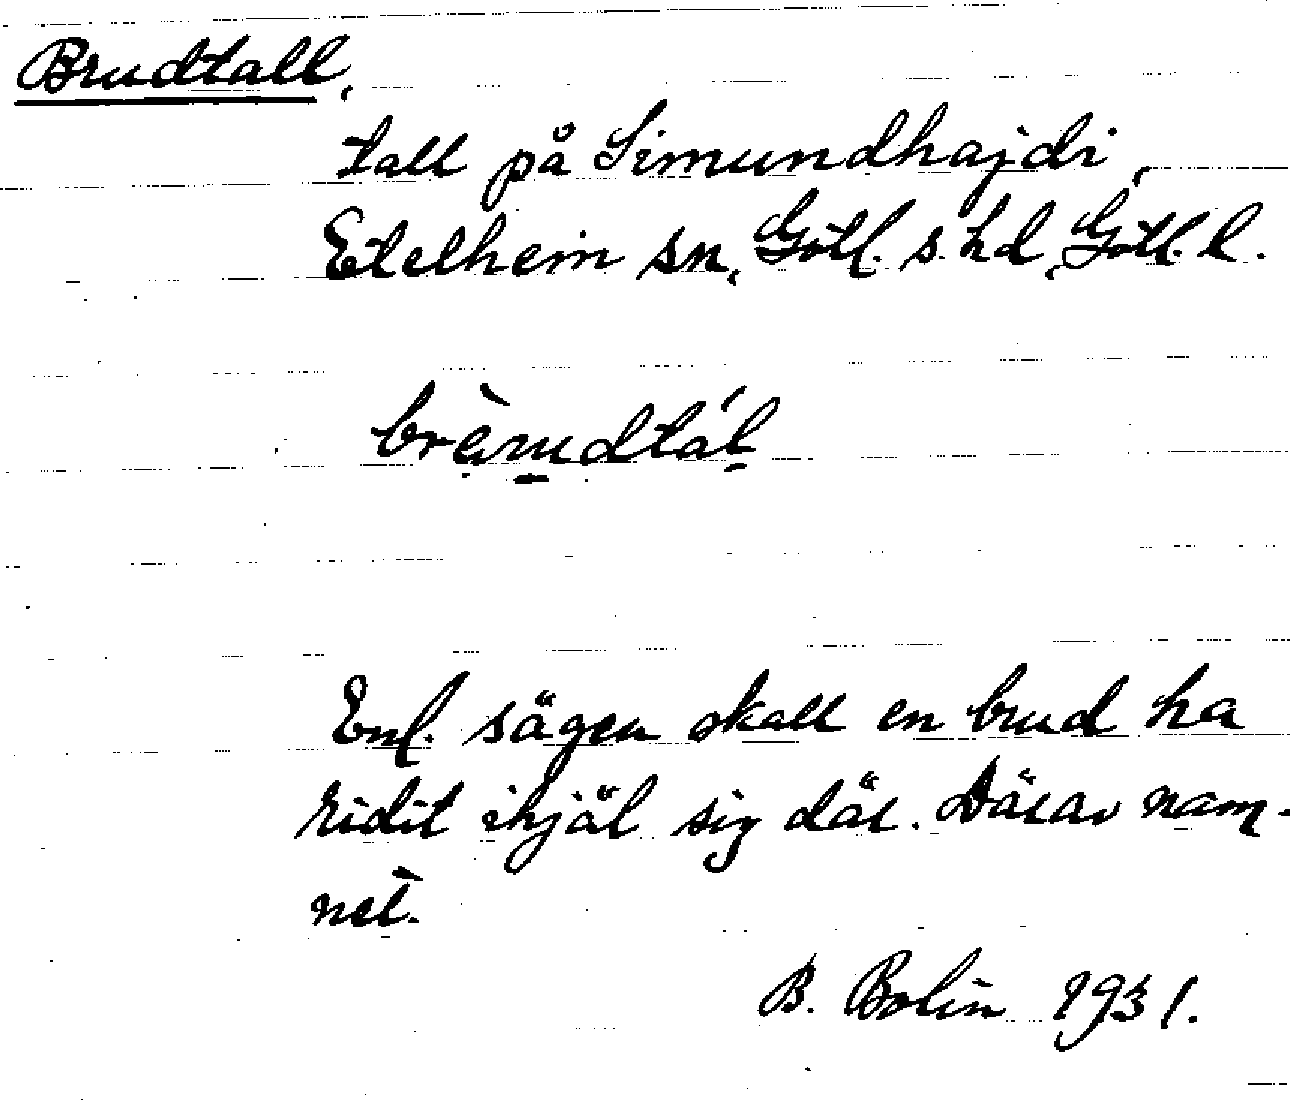 Brudtall,
tall på Simundhajdi,
Etelhem sn, Gotl. s. hd, Gotl. l.
Enl. sägen skall en brud ha
ridit ihjäl sig där. Därav nam-
net.
B. Bolin 1931.